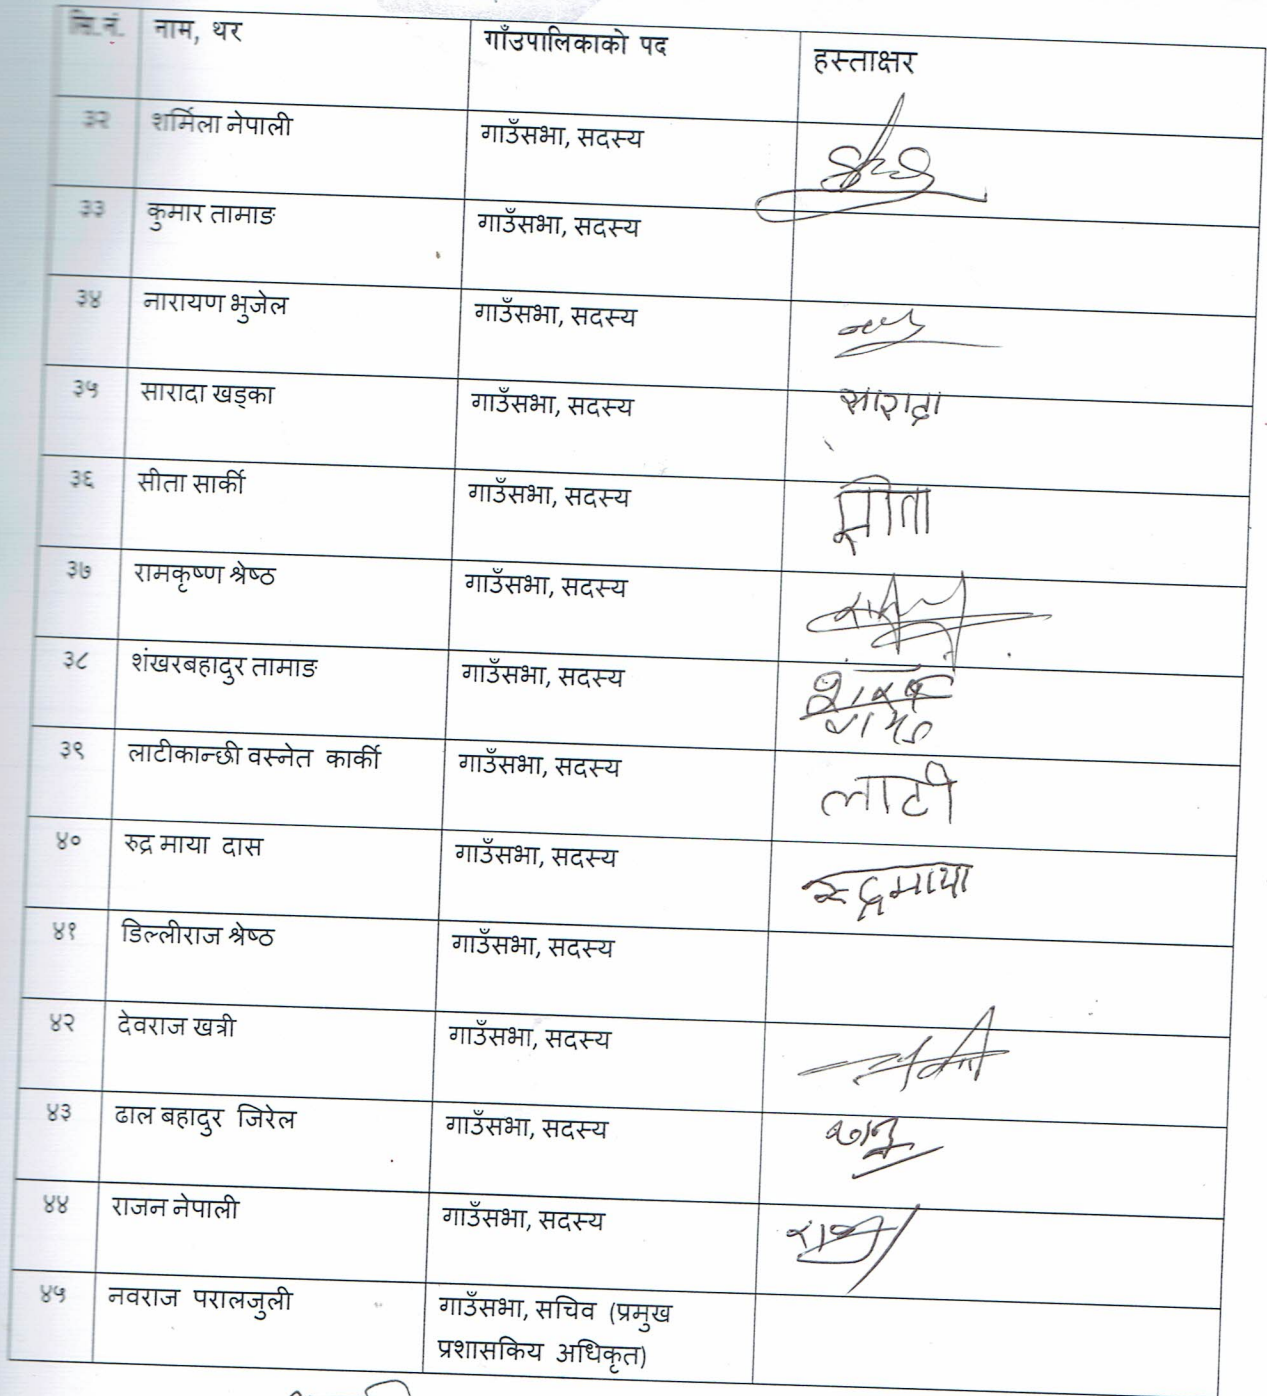 सि.नं. नाम, थर गाँउपालिकाको पद हस्ताक्षर
३२ शर्मिला नेपाली गाउँसभा, सदस्य
३३ कुमार तामाङ गाउँसभा, सदस्य
३४ नारायण भुजेल गाउँसभा, सदस्य
३५ सारादा खड्का गाउँसभा, सदस्य सारादा
३६ सीता सार्की गाउँसभा, सदस्य सीता
३७ रामकृष्ण श्रेष्ठ गाउँसभा, सदस्य
३८ शंखरबहादुर तामाङ गाउँसभा, सदस्य
३९ लाटीकान्छी वस्नेत कार्की गाउँसभा, सदस्य लाटी
४० रुद्र माया दास गाउँसभा, सदस्य रुद्रमाया
४१ डिल्लीराज श्रेष्ठ गाउँसभा, सदस्य
४२ देवराज खत्री गाउँसभा, सदस्य
४३ ढाल बहादुर जिरेल गाउँसभा, सदस्य
४४ राजन नेपाली गाउँसभा, सदस्य
४५ नवराज परालजुली गाउँसभा, सचिव (प्रमुख
प्रशासकिय अधिकृत)